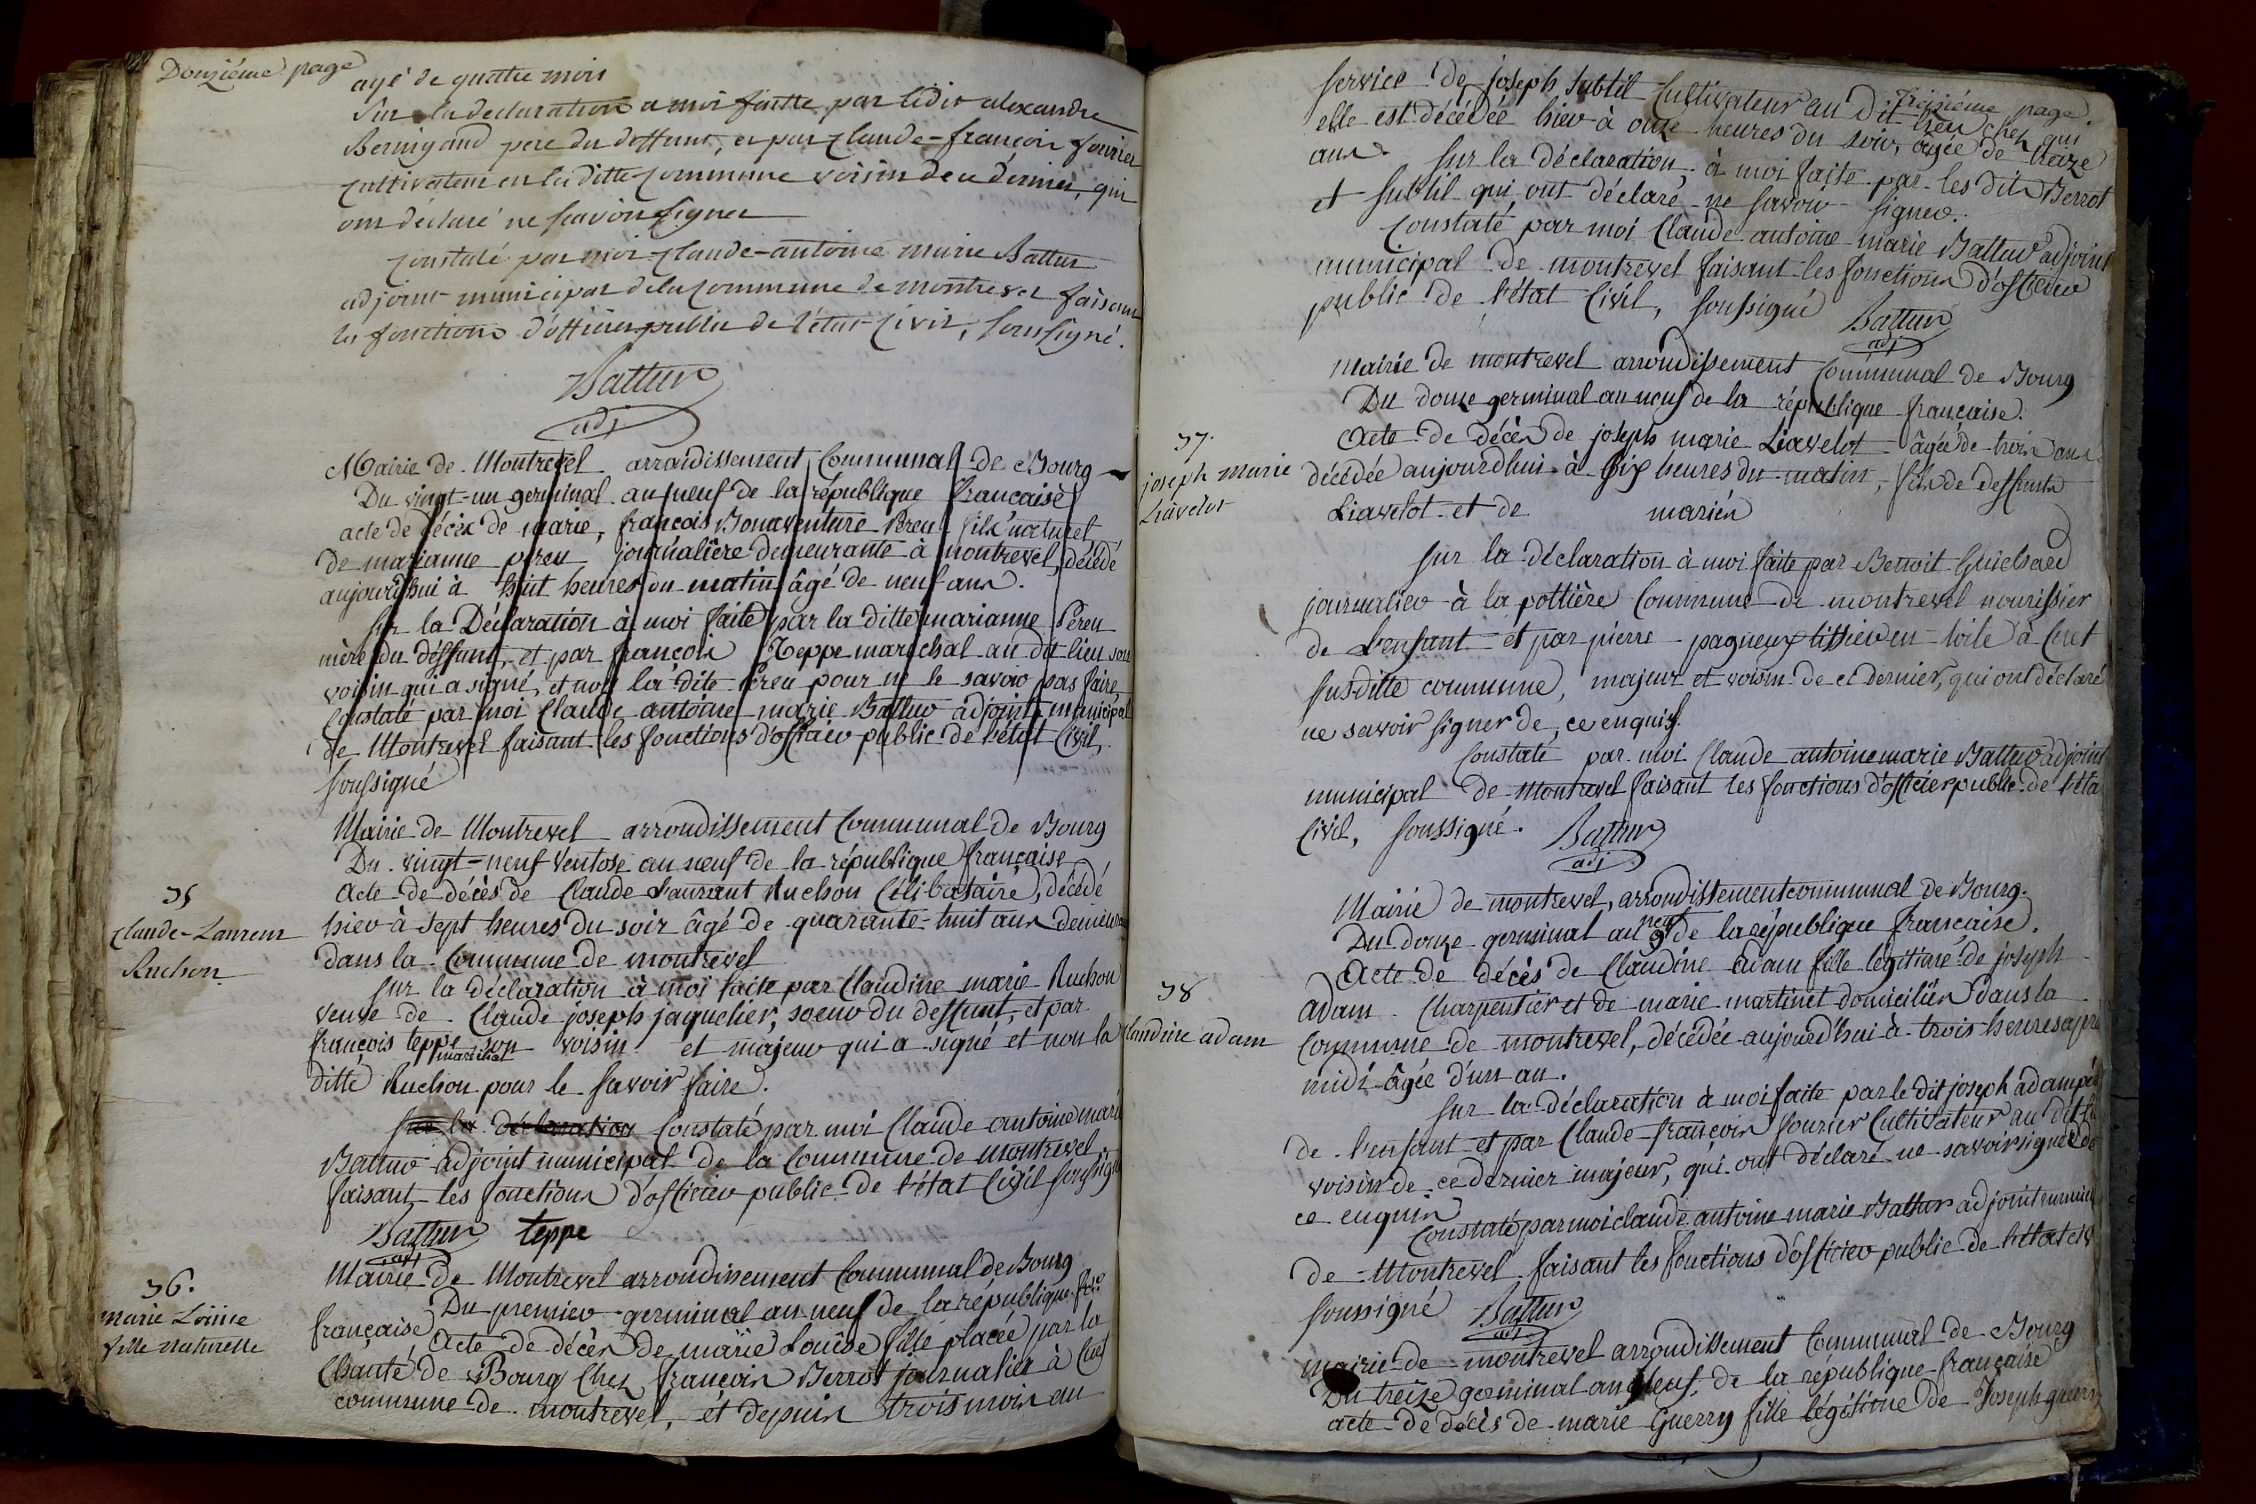 Douzième page
agé de quatre mois
Sur la declaration a moi faitte par ledit alexandre
pere du deffunt, et par claude-françois fourier
cultivateur en la ditte commune voisin de ce dernier, qui
ont déclaré ne scavoir signer
constaté par moi claude-antoine marie Battur
adjoint municipal de la commune de montrevel faisant
les fonctions d'officier public de l'état civil, soussigné.
Battur
adj
Mairie de Montrevel arrondissement Communal de Bourg
Du vingt-un germinal an neuf de la république française
acte de décès de marie, françois Bonaventure Pereu fils naturel
de marianne pereu journalière demeurante à montrevel, décédé
aujourd'hui à huit heures du matin âgé de neuf ans.
sur la Déclaration à moi faite par la ditte marianne Péreu
mère du deffunt, et par françois Teppe marechal au dit lieu son
voisin qui a signé, et non la dite Pereu pour ne le savoir pas faire,
Constaté par moi Claude antoine marie Battur adjoint municipal
de Montrevel faisant les fonctions d'officier public de l'état Civil,
soussigné
Mairie de Montrevel arrondissement Communal de Bourg
Du vingt-neuf Ventose an neuf de la république française
35
Claude-Laurent
Ruchon
Acte de décès de Claude Laurant Ruchon Célibataire, décédé
hier à sept heures du soir âgé de quarante-huit ans demeurant
dans la Commune de montrevel
sur la déclaration à moi faite par Claudine marie Ruchon
veuve de Claude joseph jaquelier, soeur du deffunt, et par
françois teppe marechal son voisin et majeur qui a signé et non la
ditte Ruchon pour le savoir faire.
sur la déclaration Constaté par moi Claude antoine marie
Battur adjoint municipal de la Commune de montrevel
faisant les fonctions d'officier public de l'état Civil soussigné
Battur teppe
adj
36.
marie Loüise
fille naturelle
Mairie de Montrevel arrondissement Communal de Bourg
Du premier germinal an neuf de la république
française Acte de décès de marie Louise fille placée par la
Charité de Bourg Chez françois Berrot journalier à Cuet
commune de montrevel, et depuis trois mois au
Treizième page.
service de joseph Subtil Cultivateur au dit lieu chez qui
elle est décédée hier à onze heures du soir, agée de treize
ans. sur la déclaration à moi faite par les dits Berrot
et Subtil qui ont déclaré ne savoir signer.
Constaté par moi Claude antoine marie Battur adjoint
municipal de montrevel faisant les fonctions d'officier
public de l'état Civil, soussigné Battur
adj
Mairie de montrevel arrondissement Communal de Bourg
Du douze germinal an neuf de la république française.
37.
joseph marie
Liavelot
Acte de décès de joseph marie Liavelot âgée de trois ans
décédée aujourdhui à six heures du matin, fils de deffunts
Liavelot et de mariés
sur la déclaration à moi faite par Benoit Guichard
journalier à la pottière Commune de montrevel nourissier
de l'enfant et par pierre pagneux tissier en toile à Cuet
susditte commune, majeur et voisin de ce dernier, qui ont déclaré
ne savoir signer de ce enquis.
Constaté par moi Claude antoine marie Battur adjoint
municipal de Montrevel faisant les fonctions d'officier public de l'état
Civil, soussigné. Battur
adj
Mairie de montrevel, arrondissement communal de Bourg.
Du douze germinal an neuf de la république française.
38
Claudine adam
Acte de décès de Claudine adam fille légitime de joseph
adam Charpentier et de marie martinet domiciliés dans la
Commune de montrevel, décédée aujourd'hui à trois heures après
midi âgée d'un an.
sur la déclaration à moi faite par le dit joseph adam père
de l'enfant et par Claude françois fourier Cultivateur au dit lieu
voisin de ce dernier majeur, qui ont déclaré ne savoir signer de
ce enquis
Constaté par moi claude antoine marie Battur adjoint municipal
de Montrevel faisant les fonctions d'officier public de l'état civil
soussigné Battur
adj
mairie de montrevel arrondissement Communal de Bourg
Du treize germinal an neuf de la république française
acte de décès de marie Guerry fille légitime de Joseph guerry